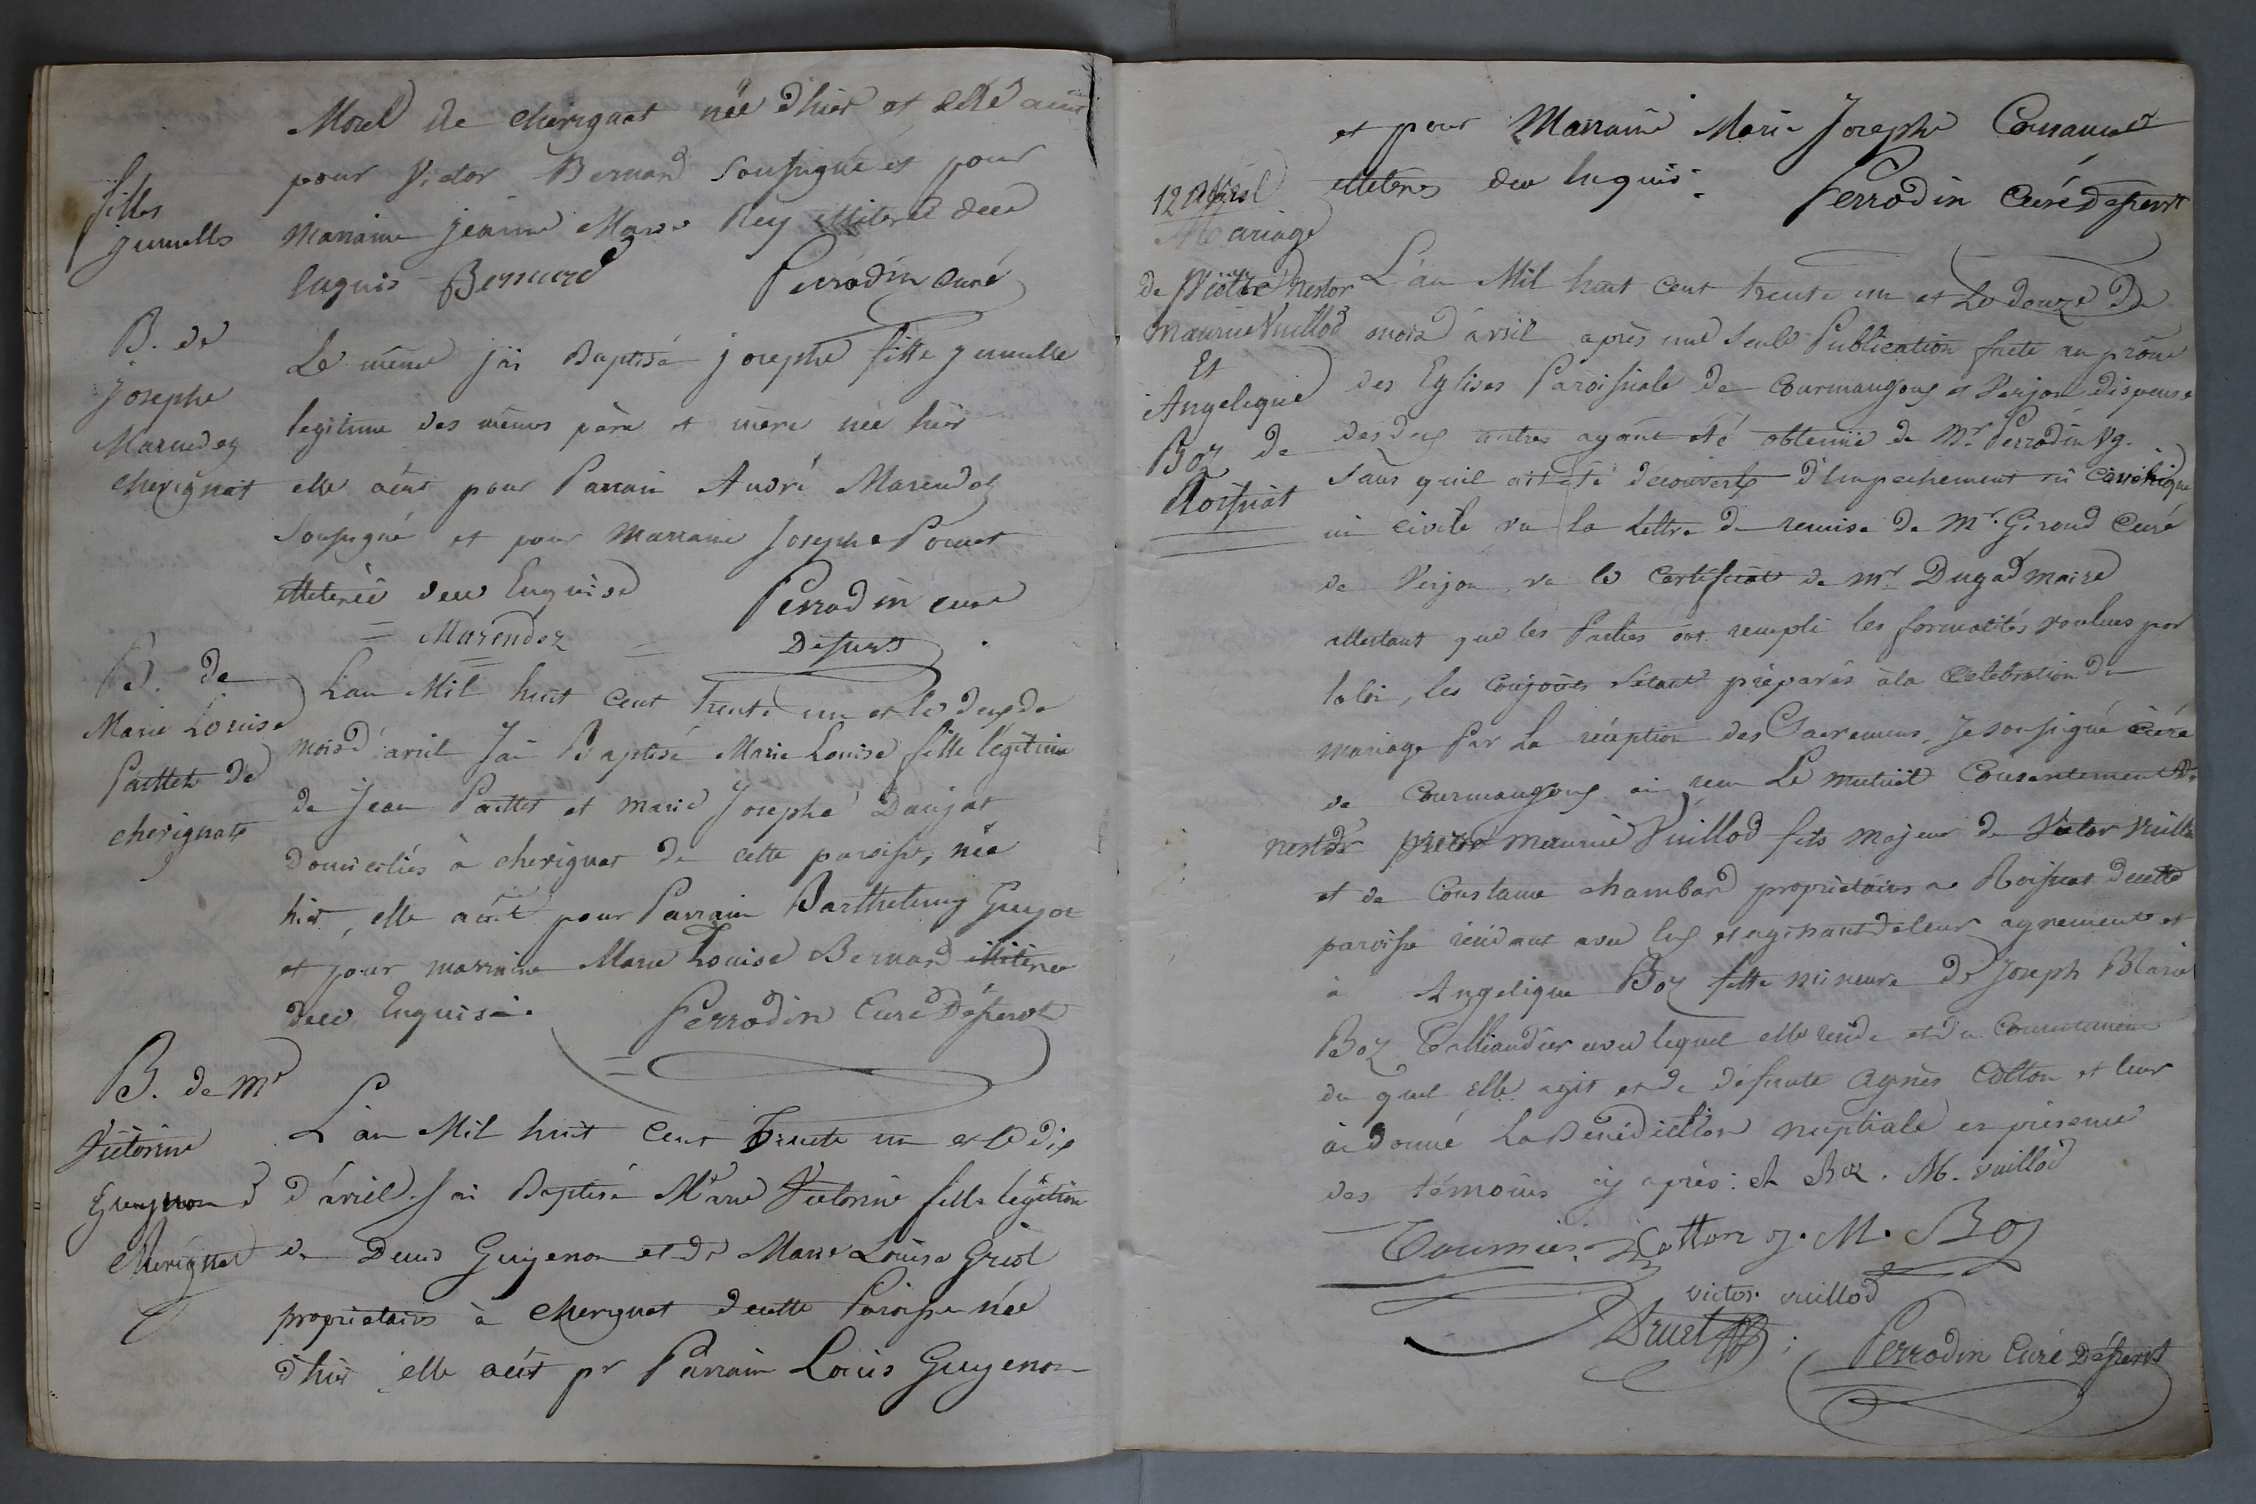 Morel de cherignat née d'hier et elle a eu
pour Victor Bernard Soussigné et pour
filles
jumelles
Marraine jeanne Marie Rey illitéré dece
Enquis Bernard Perrodin Curé
B. de
Josephe
Marendez
cherignat
Le même j'ai Baptisé josephe fille jumelle
legitime des mêmes père et mère née hier
elle a eut pour Parrain André Marendez
Soussigné et pour Marraine Josephe Poncet
illiterée dece Enquise Perrodin curé
= Marendez = Desserv
B. de
Marie Louise
Paillet de
cherignat
L'an Mil huit cent trente un et le deux de
mois d'avril J'ai Baptisé Marie Louise fille légitime
de Jean Paillet et marie Josephe Daujat
Domiciliés à cherignat de cette paroisse, née
hier, elle a eut pour Parrain Barthelemy Guyot
et pour marraine Marie Louise Bernard illiterée
dece Enquisée. Perrodin Curé Desservt
B. de Me
Victorine
Guyenon d
cherignat
L'an Mil huit cent trente un et le dix
d'avril J'ai Baptisé Marie Victorine fille légitime
de Denis Guyenon et de Marie Louise Griot
propriétaires à cherignat de cette Paroisse née
d'hier elle a eut pr Parrain Louis Guyenon
et pour Marraine Marie Josephe
illeterés dece Enquis. Perrodin Curé Desservt
12 Avril
Mariage
de Victor Nestor
Maurice Vuillod
Et
Angelique
Boz de
Roissiat
L'an Mil huit cent trente un et Le douze De
mois d'avril après une Seule Publication faite au prône
des Eglises Paroissiale de Courmangoux et Verjon dispense
des deux autres ayant été obtenüe de Mr Perrodin Vg.
Sans qu'il ait été découvert d'Empechement ni canonique
ni civile vu la Lettre de remise de Mr. Giroud Curé
de Verjon, vu le Certificat de Mr Dugad Maire
attestant que les Parties ont rempli les formalités voulues par
la loi, les conjoints s'étant préparés à la Celebration du
mariage par La réception des Sacremens, Je soussigné curé
de Courmangoux ai reçu Le mutuel Consentement de
nestor victor maurice Vuillod fils majeur de Victor Vuillod
et de Constance chambard propriétaires a Roissiat de cette
paroisse residant avec Eux et agissant de leur agrement et
à Angelique Boz fille mineure de Joseph Marie
Boz Tailliandier avec lequel elle reside et du Consentement
du quel elle agit et de défunte Agnès Cotton et leur
ai donné La Bénédiction nuptiale en présence
des témoins cy après: A Boz. M. Vuillod
Tournier Cotton J. M. Boz
victor vuillod
Druet Perrodin Curé Desservt